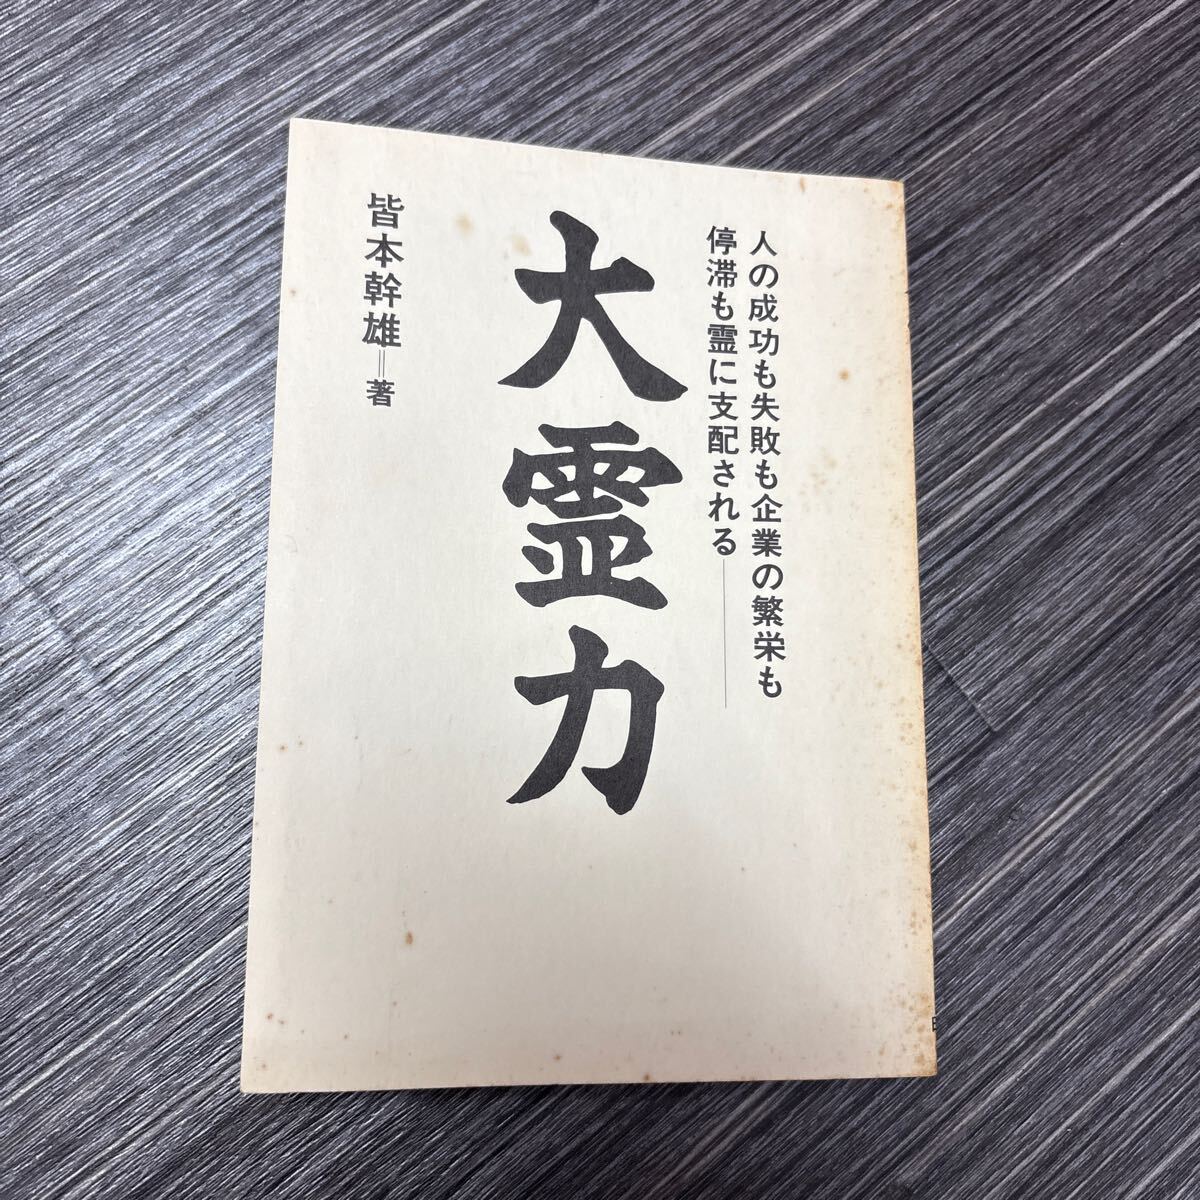 人の成功も失敗も企業の繁栄も
停滞も霊に支配される――
大霊力
皆本幹雄=著